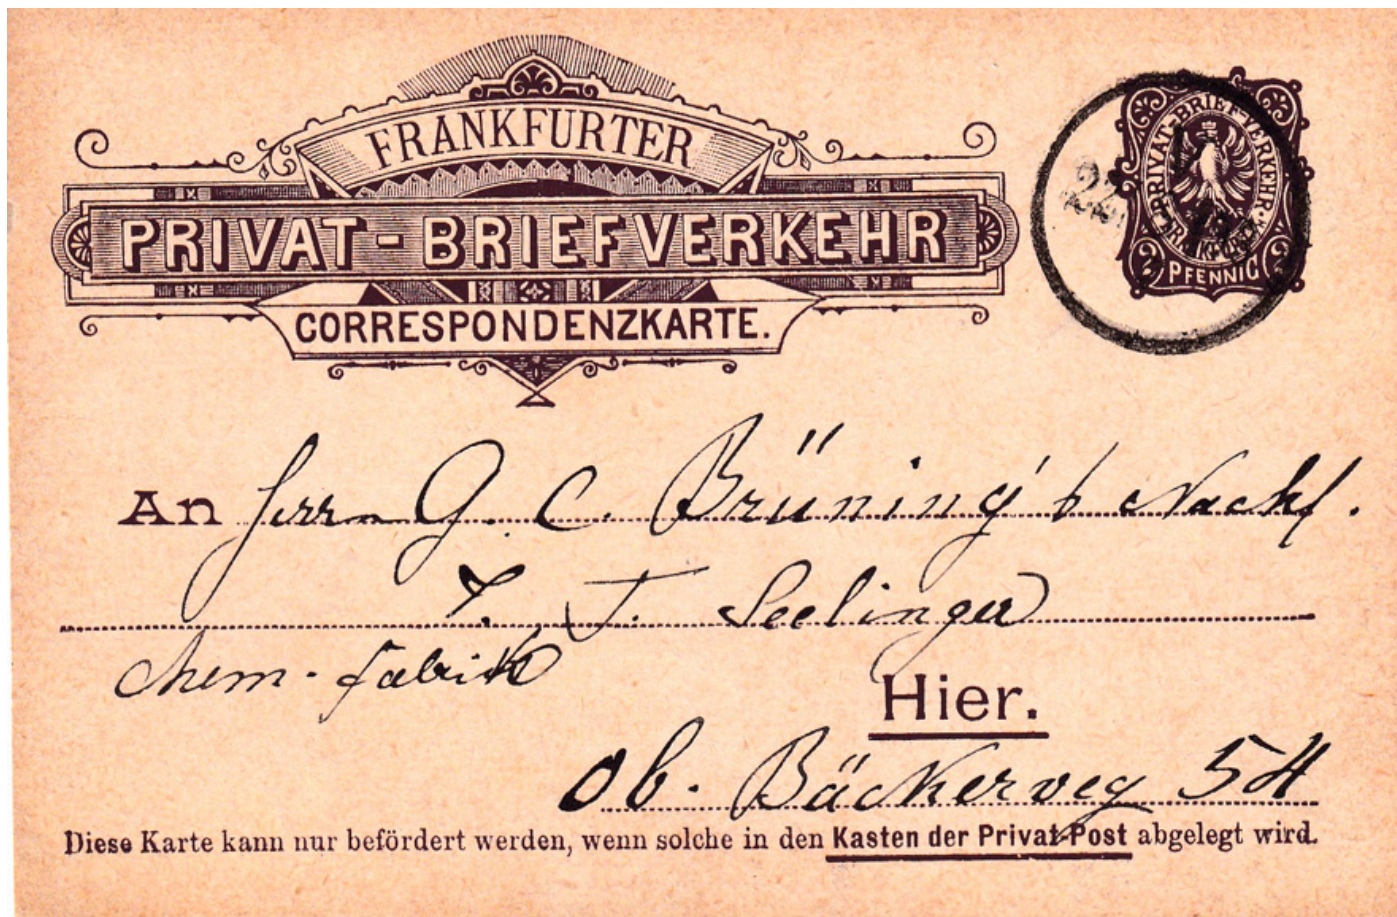 FRANKFURTER
PRIVAT-BRIEFVERKEHR
CORRESPONDENZKARTE.
PRIVAT-BRIEF-VERKEHR
FRANKFURT
2 PFENNIG
22
An Herrn G. C. Brüning's Nachf.
J. Seelinger
Chem. Fabrik
Hier.
Ob. Bäckerweg 54
Diese Karte kann nur befördert werden, wenn solche in den Kasten der Privat-Post abgelegt wird.